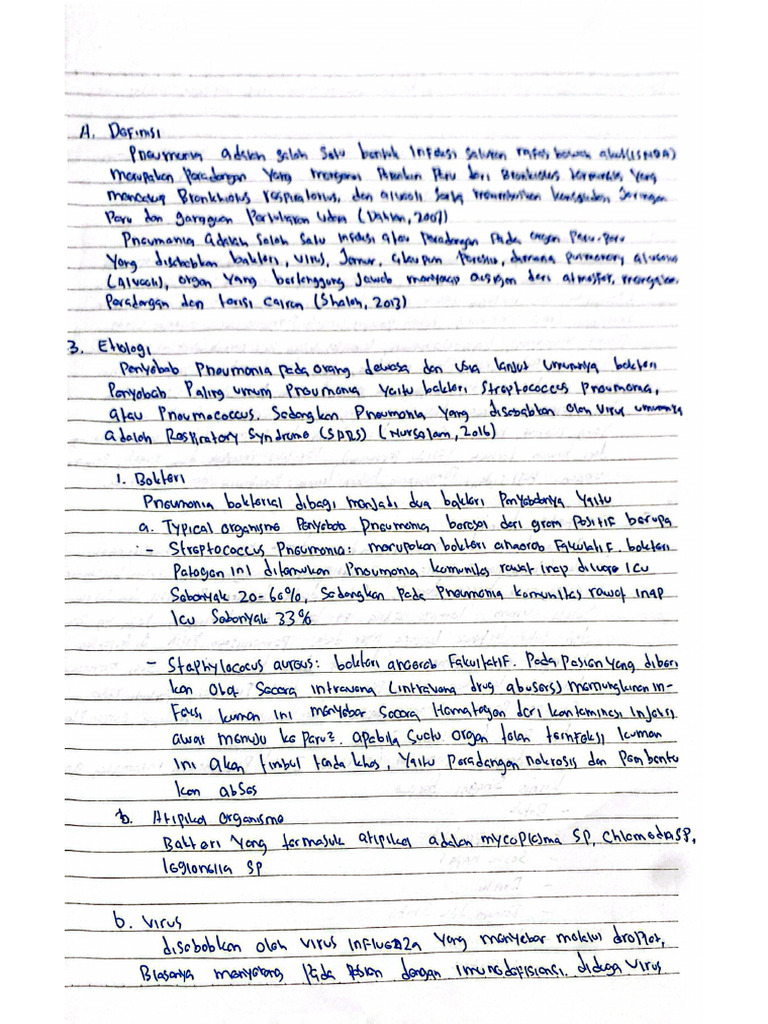 A. Definisi
Pneumonia adalah salah satu bentuk infeksi saluran nafas bawah akut (ISNBA)
merupakan peradangan yang mengenai Parenkim Paru dari Bronkiolus terminalis yang
mencakup Bronkhiolus respiratorius, dan alveoli serta menimbulkan konsolidasi Jaringan
Paru dan gangguan Pertukaran udara (Dahlan, 2007)
Pneumonia adalah Salah satu infeksi atau Peradangan Pada organ Paru-Paru
Yang disebabkan bakteri, virus, Jamur, ataupun Parasit, dimana pulmonary alveolus
(Alveoli), organ Yang bertanggung Jawab menyerap oksigen dari atmosfer, mengalami
Peradangan dan terisi cairan (Shaleh, 2013)
3. Etiologi
Penyebab Pneumonia pada orang dewasa dan usia lanjut umumnya bakteri
Penyebab Paling umum Pneumonia Yaitu bakteri Streptococcus Pneumonia,
atau Pneumococcus. Sedangkan Pneumonia Yang disebabkan oleh virus umumnya
adalah Respiratory Syndrome (SARS) (Nursalam, 2016)
1. Bakteri
Pneumonia bakterial dibagi menjadi dua bakteri Penyebabnya Yaitu
a. Typical organisme Penyebab Pneumonia berasal dari gram positif berupa
- Streptococcus Pneumonia: merupakan bakteri anaerob Fakultatif. bakteri
Patogen ini ditemukan Pneumonia komunitas rawat inap diluar ICU
Sebanyak 20-60%, Sedangkan Pada Pneumonia komunitas rawat inap
Icu Sebanyak 33%
- Staphylococus aureus: bakteri anaerob Fakultatif. Pada Pasien Yang diberi
kan Obat Secara intravena (intravena drug abusers) memungkinkan in-
Feksi kuman ini menyebar Secara Hematogen dari kontaminasi Injeksi
awal menuju ke paru². apabila Suatu organ telah terinfeksi kuman
ini akan timbul tanda khas, Yaitu Peradangan nekrosis dan Pembentu
kan abses
b. Atipikal organisme
Bakteri Yang termasuk atipikal adalah mycoplasma SP, Chlamedia SP,
legionella SP
b. Virus
disebabkan oleh virus Influenza Yang menyebar melalui droplet,
Biasanya menyerang Pada Pasien dengan imunodefisiensi. diduga Virus